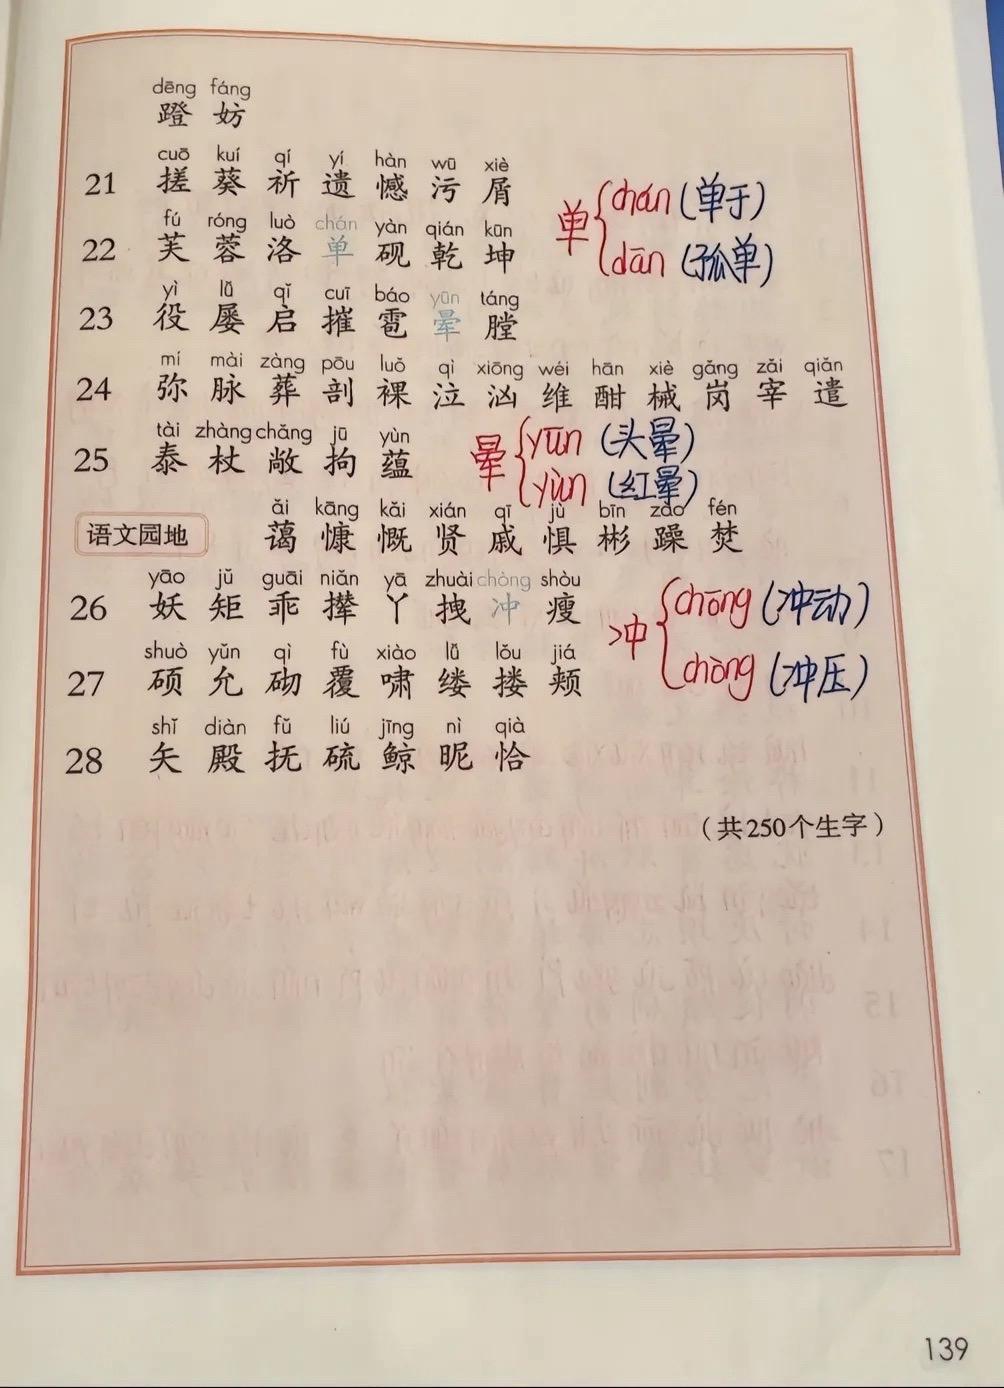 dēng fáng
蹬 妨
cuō kuí qí yí hàn wū xiè
21 搓 葵 祈 遗 憾 污 屑
fú róng luò chán yàn qián kūn
22 芙 蓉 洛 单 砚 乾 坤
单 chán (单于)
dān (孤单)
yì lǚ qǐ cuī báo yūn táng
23 役 屡 启 摧 雹 晕 膛
mí mài zàng pōu luǒ qì xiōng wéi hān xiè gǎng zǎi qiǎn
24 弥 脉 葬 剖 裸 泣 汹 维 酣 械 岗 宰 遣
tài zhàng chǎng jū yùn
25 泰 杖 敞 拘 蕴
晕 yūn (头晕)
yùn (红晕)
ǎi kāng kǎi xián qī jù bīn zào fén
语文园地 蔼 慷 慨 贤 戚 惧 彬 躁 焚
yāo jǔ guāi niǎn yā zhuài chòng shòu
26 妖 矩 乖 撵 丫 拽 冲 瘦
冲 chōng (冲动)
chòng (冲压)
shuò yǔn qì fù xiào lǚ lǒu jiá
27 硕 允 砌 覆 啸 缕 搂 颊
shǐ diàn fǔ liú jīng nì qià
28 矢 殿 抚 硫 鲸 昵 恰
（共250个生字）
139